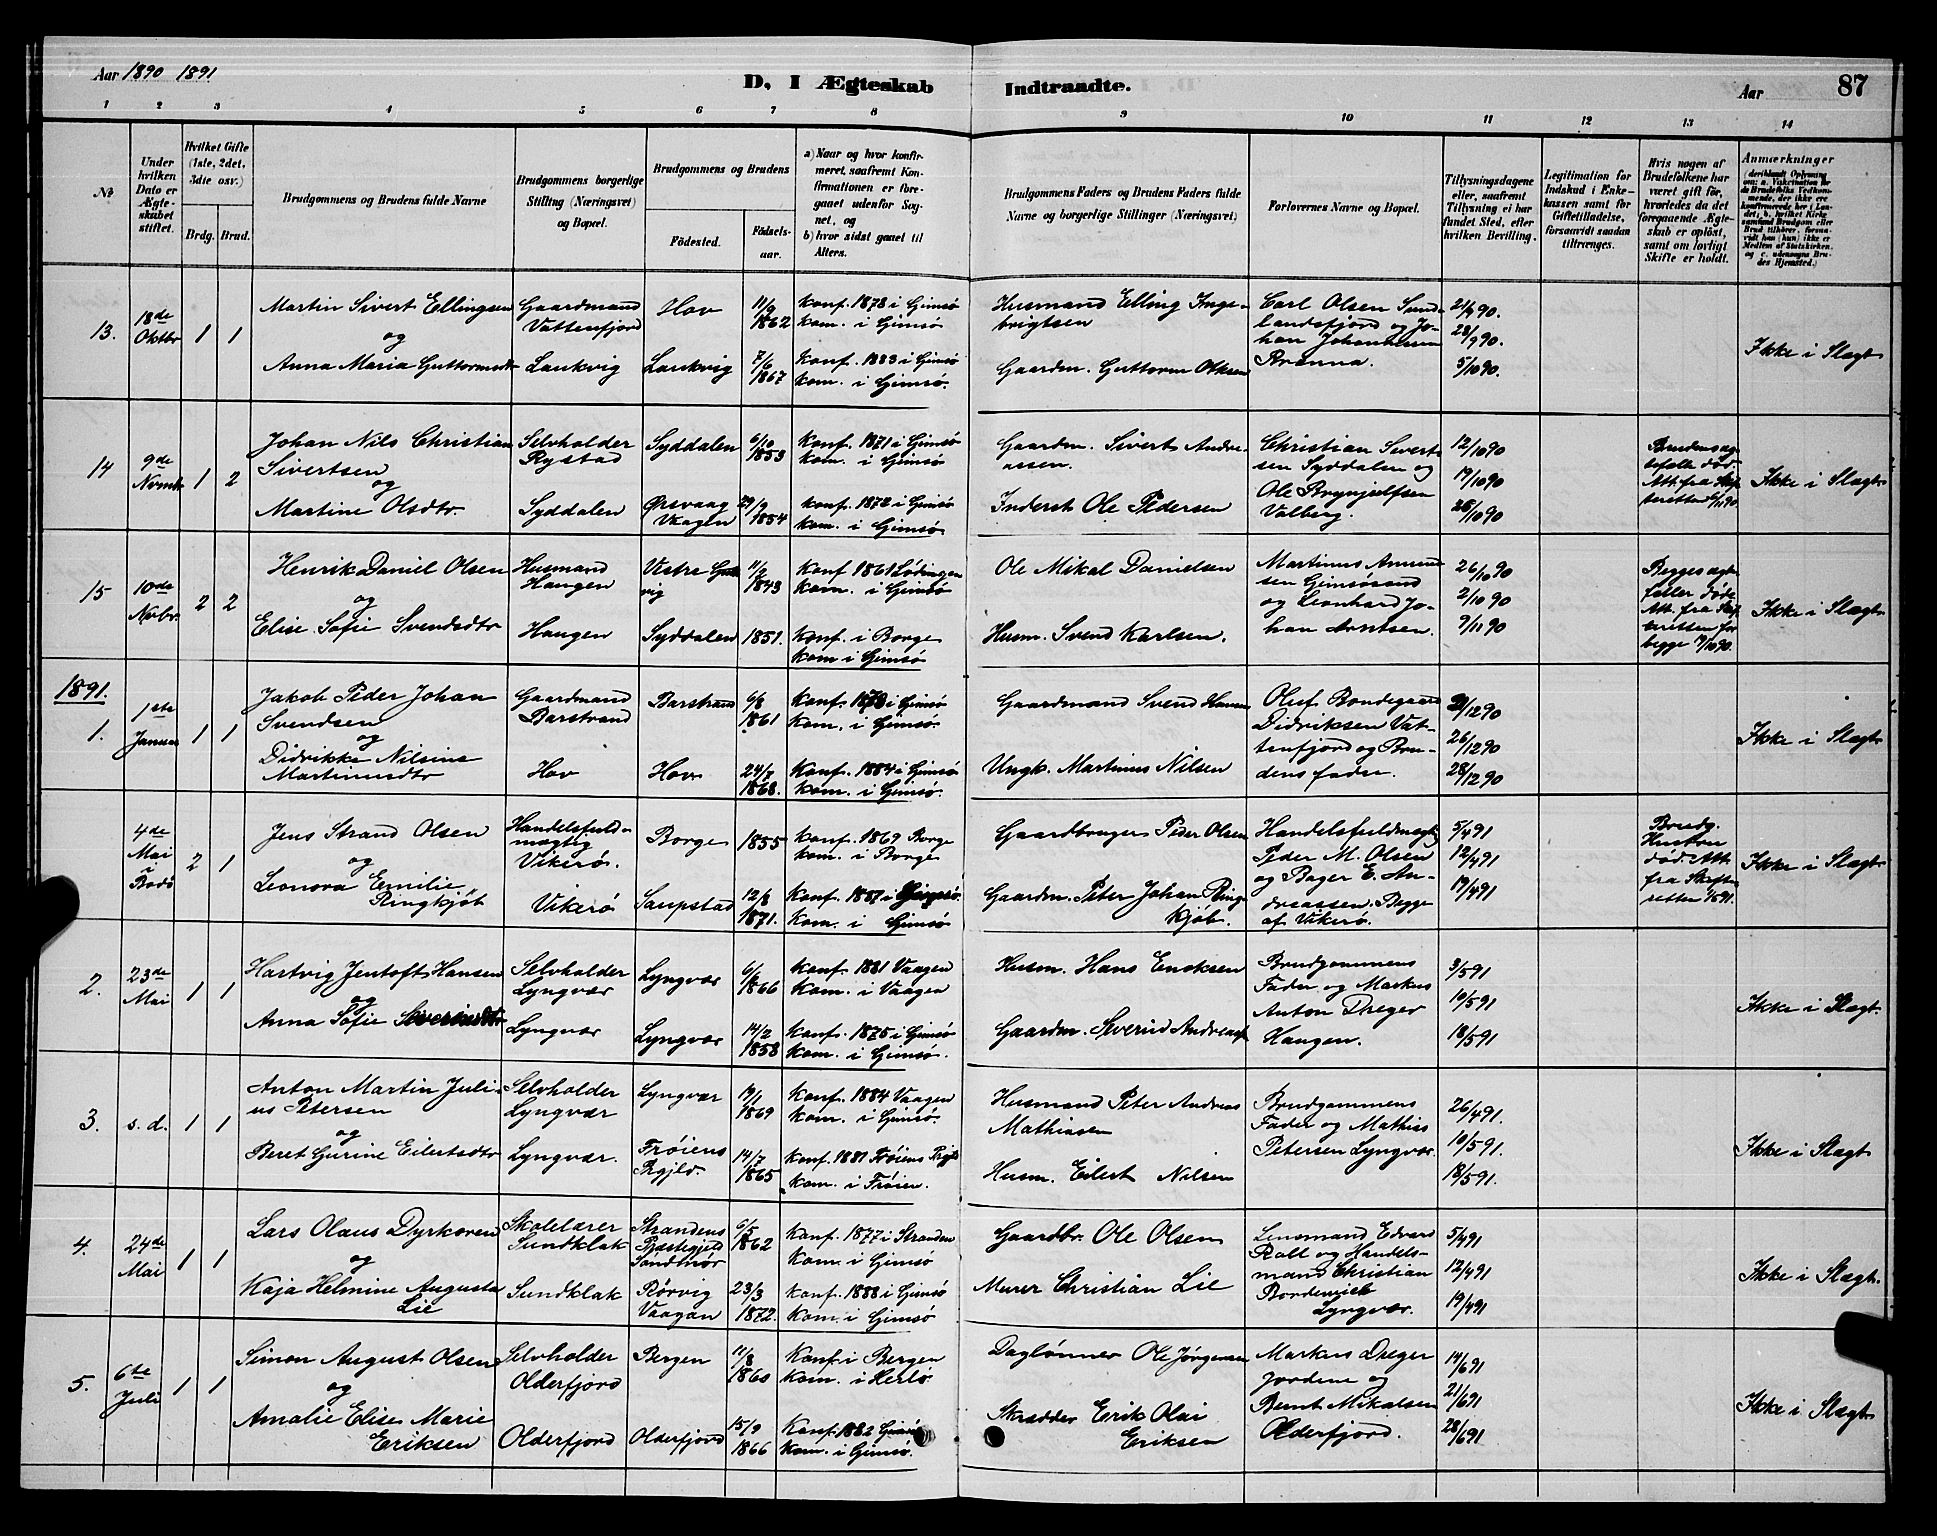 Aar 1890 1891
D. I Ægteskab Indtraadte.
Aar
87
1 2 3 4 5 6 7 8 9 10 11 12 13 14
No
Under hvilken Dato er Ægteskabet stiftet.
Hvilket Gifte (1ste, 2det, 3die osv.)
Brdg. Brud.
Brudgommens og Brudens fulde Navne
Brudgommens borgerlige Stilling (Næringsvei) og Bopæl.
Brudgommens og Brudens
Fødested.
Fødselsaar.
a) Naar og hvor konfirmeret, saafremt Konfirmationen er foregaaet udenfor Sognet, og
b) hvor sidst gaaet til Alters.
Brudgommens Faders og Brudens Faders fulde Navne og borgerlige Stillinger (Næringsvei)
Forlovernes Navne og Bopæl.
Tillysningsdagene eller, saafremt Tillysning ei har fundet Sted, efter hvilken Bevilling.
Legitimation for Indskud i Enkekassen samt for Giftetilladelse, forsaavidt saadan tiltrænges.
Hvis nogen af Brudefolkene har været gift før, hvorledes da det foregaaende Ægteskab er opløst, samt om lovligt Skifte er holdt.
Anmærkninger
13. 18de Oktbr 1 1
Martin Sivert Ellingsen
og
Anna Maria Guttormsdtr
Gaardmand
Vattenfjord
Laukvig
Hov
Laukvig
11/9 1862
7/6 1867
konf. 1878 i Gimsø
kom. i Gimsø
konf. 1883 i Gimsø
kom. i Gimsø.
Husmand Elling Ingebrigtsen
Gaardm. Guttorm Olsen
Carl Olsen Sundlandsfjord og Johan Johannessen
Brenna.
21/9 90.
28/9 90.
5/10 90.
Ikke i Slægt
14 9de Novmbr 1 2
Johan Nils Christian
Sivertsen
og
Martine Olsdtr.
Selvholder
Rystad
Syddalen
Syddalen
Ørsvaag
Vaagen
6/10 1853
29/9 1854
konf. 1871 i Gimsø
kom. i Gimsø
konf. 1872 i Gimsø
kom. i Gimsø
Gaardm. Sivert Andreassen.
Inderst Ole Pedersen
Christian Sivertsen Syddalen og
Ole Brynjelfsen
Valberg.
12/10 90
19/10 90
26/10 90
Brudens ægtefælle død.
Att. fra Skifteretten
Ikke i Slægt
15 10de Novbr. 2 2
Henrik Daniel Olsen
og
Elise Sofie Svendsdtr
Husmand
Haugen
Haugen
Vestre
vig
Syddalen
11/2 1843
1851.
Konf. 1861 Lødingen
kom. i Gimsø
konf. i Borge
kom i Gimsø
Ole Mikal Danielsen
Husm. Svend Karlsen.
Martinus Amundsen Gimsøsand
og Leonhard Johan Arntsen.
26/10 90
2/10 90
9/11 90
Begges ægtefæller døde
Att. fra Skifteretten for
begge
Ikke i Slægt
1891.
1. 1ste Januar 1 1
Jakob Peder Johan
Svendsen
og
Didrikke Nilsine
Martinusdtr
Gaardmand
Barstrand
Hov
Barstrand
Hov
6/8 1861
24/7 1868.
Konf. i Gimsø
kom. i Gimsø.
Konf. 1884 i Gimsø
kom. i Gimsø.
Gaardmand Svend Hansen
Ungk. Martinus Nilsen
Oluf Bondegaard
Didriksen Vattenfjord og Brudens fader.
21/12 90
26/12 90
28/12 90
Ikke i Slægt
4de Mai i Bodø 2 1
Jens Strand Olsen
og
Leonora Emilie
Ringkjøb
Handelsfuldmægtig
Vikerø.
Vikerø
Borge
Saupstad
1855
12/8 1871.
konf. 1869 Borge
kom. i Borge
Konf. 1887 i Gimsø.
Kom. i Gimsø
Gaardbruger Peder Olsen
Gaardm. Peter Johan Ringkjøb.
Handelsfuldmægtig
Peder M. Olsen
og Bager E. Andreassen. Begge
af Vikerø.
5/4 91
12/4 91
19/4 91
Brudg.
Hustru
død. Att
fra Skifteretten
Ikke i Slægt
2. 23de Mai 1 1
Hartvig Jentoft Hansen
og
Anna Sofie Severinsdtr
Selvholder
Lyngvær
Lyngvær
Lyngvær
Lyngvær
6/6 1866
14/2 1858
konf. 1881 Vaagen
Kom. i Vaagen
Konf. 1875 i Gimsø
kom. i Gimsø.
Husm. Hans Enoksen
Gaardm. Severin Andreass
Brudgommens
Fader og Markus
Anton Dreger
Haugen.
3/5 91
10/5 91
18/5 91
Ikke i Slægt
3. s. d. 1 1
Anton Martin Julius Petersen
og
Beret Gurine Eilertsdtr
Selvholder
Lyngvær
Lyngvær.
Lyngvær
Frøiens
Prgjld.
19/1 1869
14/7 1865
Konf. 1884 Vaagen
kom. i Gimsø.
konf. 1881 Frøiens Prgjld
kom. i Frøien.
Husmand Peter Andreas
Mathiasen
Husm. Eilert Nilsen
Brudgommens
Fader og Mathias
Petersen Lyngvær.
26/4 91.
10/5 91.
18/5 91.
Ikke i Slægt
4. 24de Mai 1 1
Lars Olaus Dyrkoren
og
Kaja Helmine Augusta
Lie
Skolelærer
Sundklak
Sundklak
Strandens
Præstegjeld
Søndmør
Rørvig
Vaagan
6/5 1862
23/3 1872.
konf. 1877 i Stranden
Kom. i Gimsø
konf. 1888 i Gimsø
Kom. i Gimsø
Gaardbr. Ole Olsen
Murer Christian Lie
Lensmand Edvard
Rall og Handelsmand Christian
Bordevick
Lyngvær.
5/4 91
12/4 91
19/4 91
Ikke i Slægt.
5. 6te Juli 1 1
Simon August Olsen
og
Amalie Elise Marie
Eriksen
Selvholder
Olderfjord
Olderfjord
Bergen
Olderfjord
11/8 1860
15/9 1866
Konf. i Bergen
kom. i Herlø.
Konf. 1882 Gimsø
Kom. i Gimsø.
Daglønner Ole Jørgensen
Skrædder Erik Olai
Eriksen
Markus Dreger
og
Bernt Mikalsen
Olderfjord.
14/6 91
21/6 91
28/6 91
Ikke i Slægt